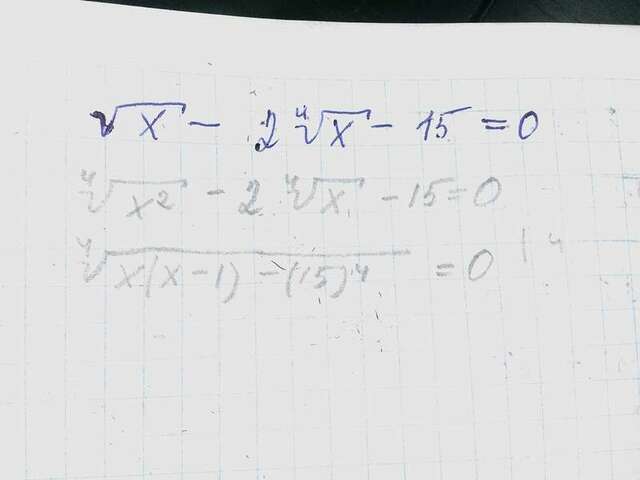 √x - 2 ∜x - 15 = 0
∜x² - 2 ∜x - 15 = 0
∜x(x-1) - (15)⁴ = 0 | 4